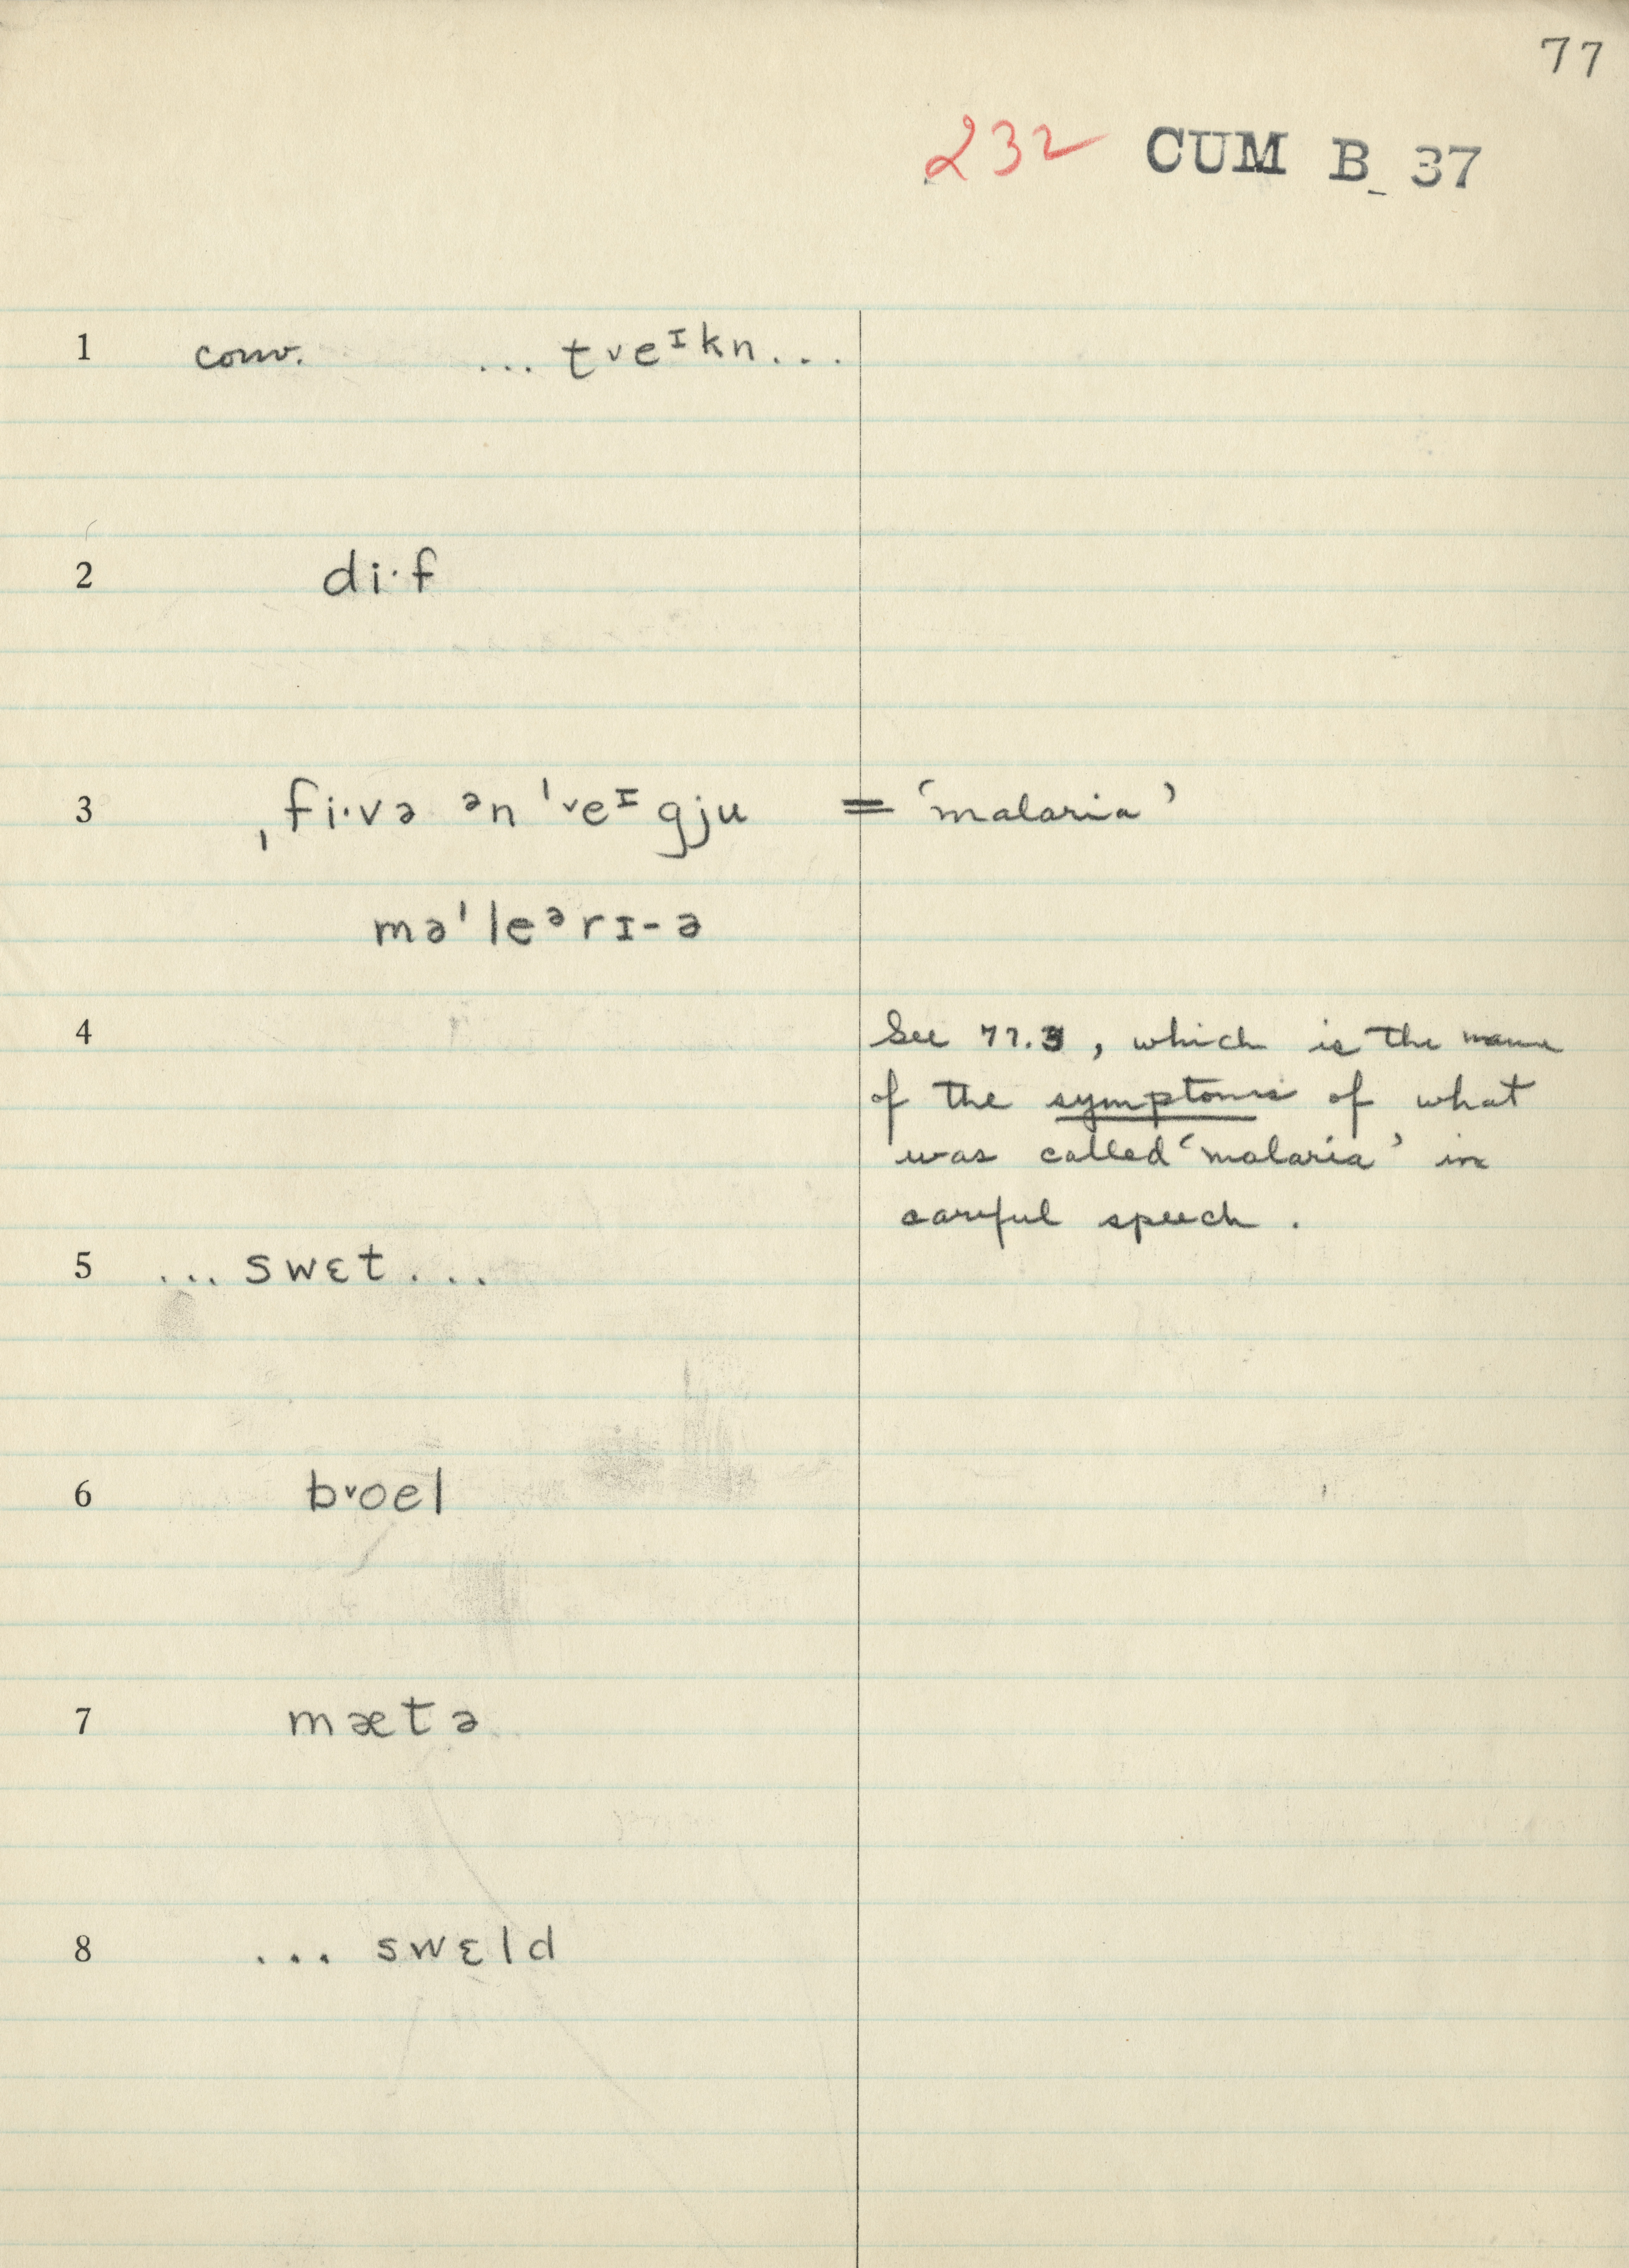 77
232 CUM B_ 37
1 conv. ... t˅eᶦkn...
2 di·f
3 ˌfi·və ᵊn ˈ˅eᶦgju = ‘malaria’
məˈleᵊrɪ-ə
4 See 77.3, which is the name
of the symptoms of what
was called ‘malaria’ in
careful speech.
5 ... swɛt...
6 b˅oel
7 mætə
8 ... swɛld